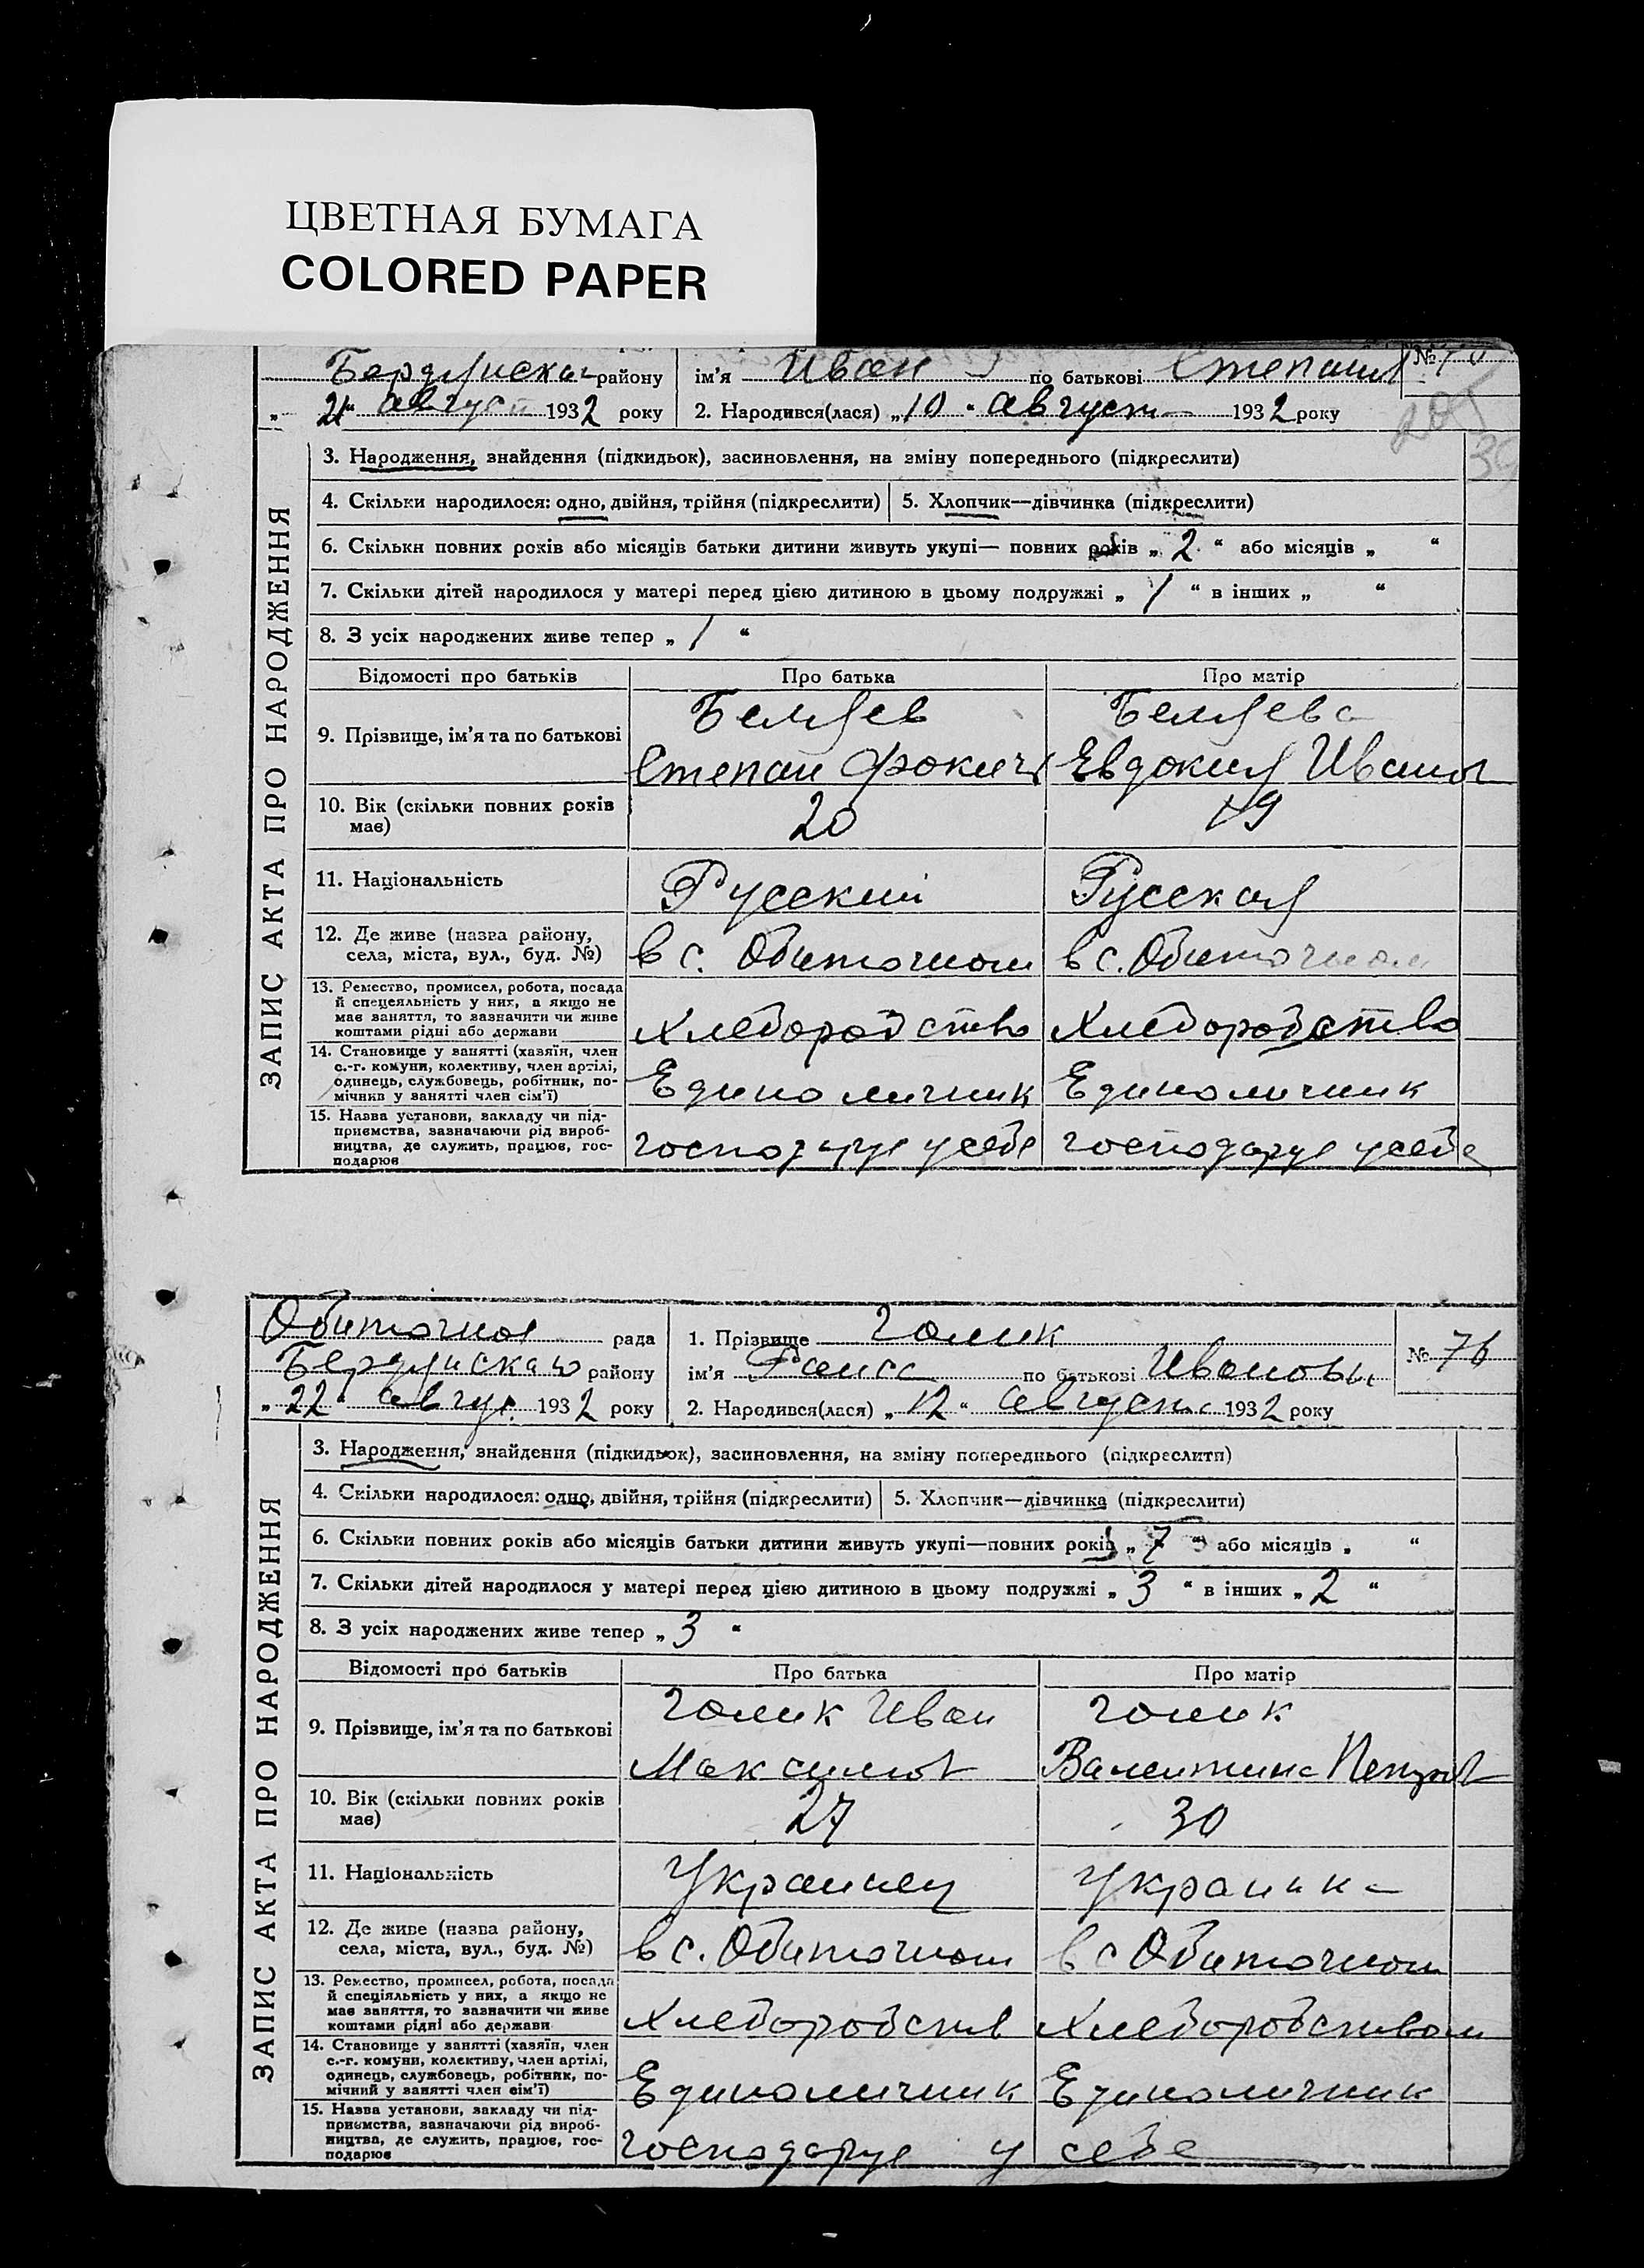 ЦВЕТНАЯ БУМАГА
COLORED PAPER
району
„ 21 “ август 1932 року
ім’я Иван по батькові Степанов №
2. Народився(лася) „ 10 “ август 1932 року
ЗАПИС АКТА ПРО НАРОДЖЕННЯ
3. Народження, знайдення (підкидьок), засиновлення, на зміну попереднього (підкреслити)
4. Скільки народилося: одно, двійня, трійня (підкреслити) 5. Хлопчик—дівчинка (підкреслити)
6. Скільки повних років або місяців батьки дитини живуть укупі— повних років „ 2 “ або місяців „ “
7. Скільки дітей народилося у матері перед цією дитиною в цьому подружжі „ 1 “ в інших „ “
8. З усіх народжених живе тепер „ 1 “
Відомості про батьків Про батька Про матір
9. Прізвище, ім’я та по батькові
Беляев Беляева
Степан Фокич Евдокия Иванов
10. Вік (скільки повних років
має)
20 19
11. Національність Русский Русская
12. Де живе (назва району,
села, міста, вул., буд. №)
в с. Обиточном в с. Обиточном
13. Ремество, промисел, робота, посада
й спецеяльність у них, а якщо не
має заняття, то зазначити чи живе
коштами рідні або держави
Хлеборобство Хлеборобство
14. Становище у занятті (хазяїн, член
с.-г. комуни, колективу, член артілі,
одинець, службовець, робітник, по-
мічник у занятті член сім’ї)
Единоличник Единоличник
15. Назва установи, закладу чи під-
приємства, зазначаючи рід вироб-
ництва, де служить, працює, гос-
подарює
господарує у себе господарує у себе
Обиточная рада
району
„ 22 “ август 1932 року
1. Прізвище Голик
ім’я Раиса по батькові Ивановн
2. Народився(лася) „ 12 “ август 1932 року
№ 76
ЗАПИС АКТА ПРО НАРОДЖЕННЯ
3. Народження, знайдення (підкидьок), засиновлення, на зміну попереднього (підкреслити)
4. Скільки народилося: одно, двійня, трійня (підкреслити) 5. Хлопчик—дівчинка (підкреслити)
6. Скільки повних років або місяців батьки дитини живуть укупі—повних років „ 7 “ або місяців „ “
7. Скільки дітей народилося у матері перед цією дитиною в цьому подружжі „ 3 “ в інших „ 2 “
8. З усіх народжених живе тепер „ 3 “
Відомості про батьків Про батька Про матір
9. Прізвище, ім’я та по батькові
Голик Иван Голик
Максимов Валентина Петров
10. Вік (скільки повних років
має)
27 30
11. Національність Украинец Украинка
12. Де живе (назва району,
села, міста, вул., буд. №)
в с. Обиточном в с Обиточном
13. Ремество, промисел, робота, посада
й спеціяльність у них, а якщо не
має заняття, то зазначити чи живе
коштами рідні або держави
Хлеборобств Хлеборобством
14. Становище у занятті (хазяїн, член
с.-г. комуни, колективу, член артілі,
одинець, службовець, робітник, по-
мічний у занятті член сім’ї)
Единоличник Единоличник
15. Назва установи, закладу чи під-
приємства, зазначаючи рід вироб-
ництва, де служить, працює, гос-
подарює
господарує у себе